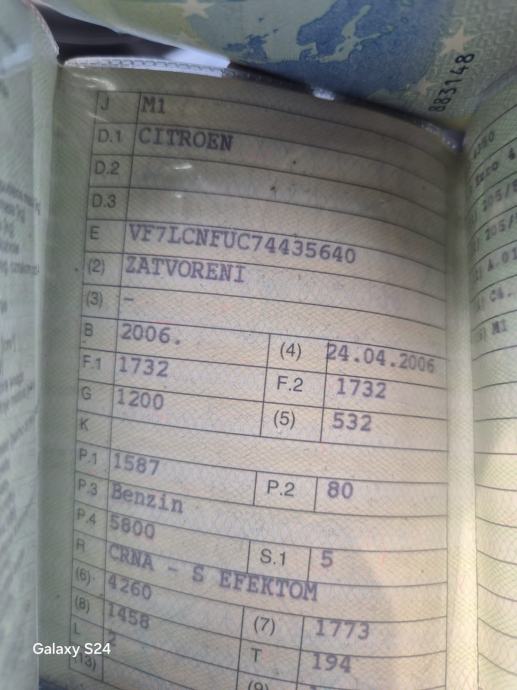 883148
J M1
D.1 CITROEN
D.2
D.3
E VF7LCNFUC74435640
(2) ZATVORENI
(3) –
B 2006. (4) 24.04.2006
F.1 1732 F.2 1732
G 1200 (5) 532
K
P.1 1587 P.2 80
P.3 Benzin
P.4 5800 S.1 5
R CRNA - S EFEKTOM
(6) 4260 (7) 1773
(8) 1458 T 194
L 2
(13) (9)
Galaxy S24